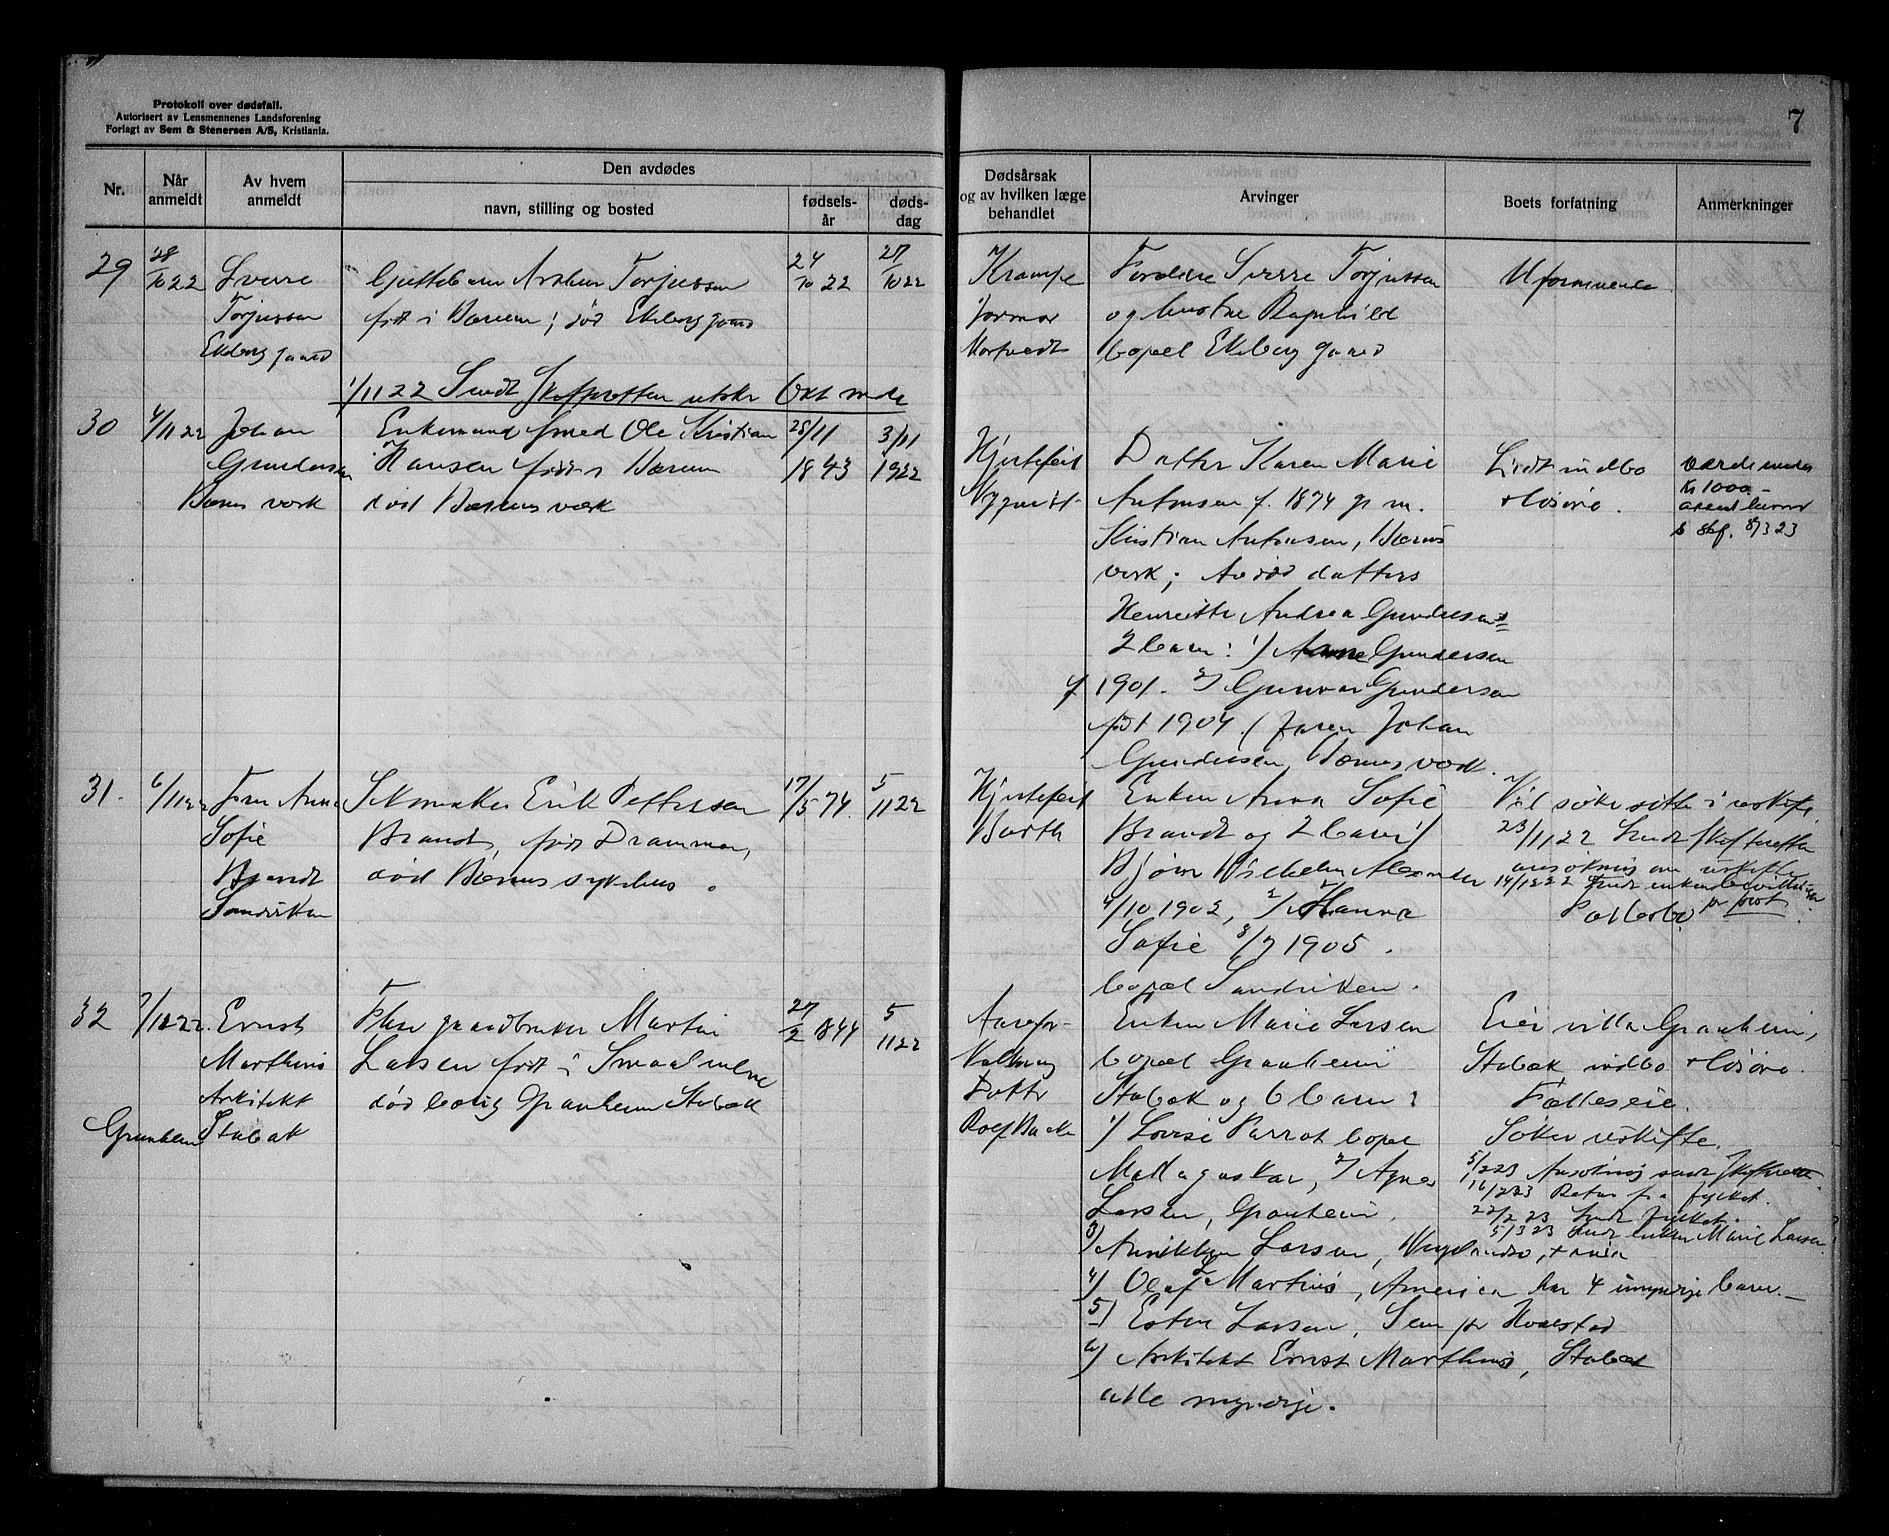 Protokoll over dødsfall.
Autorisert av Lensmennenes Landsforening
Forlagt av Sem & Stenersen A/S, Kristiania.
7
Nr.
Når anmeldt
Av hvem anmeldt
Den avdødes
navn, stilling og bosted
fødsels-år
døds-dag
Dødsårsak og av hvilken læge behandlet
Arvinger
Boets forfatning
Anmerkninger
29
28/10 22
Sverre
Torjussen
Ekeberg gaard
Guttebarn Torjussen
født i Bærum; død Ekeberg gaard
24/10 22
27/10 22
Krampe
Fordere Sverre Torjussen
og hustru Ragnhild
bopæl Ekeberg gaard
Uformuende
1/11 22 Sendt Skifteretten utskr Okt mde
30
4/11 22
Johan
Gundersen
Bærums verk
Enkemand smed Ole Kristian
Hansen født i Bærum
død Bærums værk
25/11
1843
3/11
1922
Hjertefeil
Nyquist
Datter Karen Marie
Antonsen f. 1874 g. m.
Kristian Antonsen, Bærums
verk; Avdød datters
Henriette Andrea Gundersens
2 barn: 1) Arne Gundersen
f 1901. 2) Gunvor Gundersen
født 1904 (faren Johan
Gundersen Bærums verk.
Litt indbo
+ løsøre.
Værdi under
Kr 1000.-
31.
6/11 22
Fru Anna
Sofie
Brandt
Sandviken
Skomaker Erik Pettersen
Brandt, født Drammen,
død Bærums sykehus.
17/5 74.
5/11 22
Hjertefeil
Barth
Enken Anna Sofie
Brandt og 2 barn 1)
Bjørn Vilhelm Alexander
4/10 1902, 2) Hanna
Sofie 8/7 1905.
bopæl Sandviken.
Vil søke sitte i uskifte.
23/11 22 Sendt skifteretten
ansøkning om uskifte
14/12 22 Sendt enken bevilling
pr post.
Fællesbo
32
7/11 22.
Ernst
Marthins
Arkitekt
Granheim Stabæk
Fhv gaardbruker Martin
Larsen født i Smaalenene
død bolig Granheim Stabæk
27/2 1844
5/11 22
Aarefor-
kalkning
Rolf Backe
Enken Marie Larsen
bopæl Granheim
Stabæk og 6 barn:
1) Lovise Parrot bopæl
Madagaskar, 2) Agnes
Larsen, Granheim.
3) Larsen,
4) Olaf L Martins, America har 4 umyndige barn.-
5) Ester Larsen, Sem pr Hvalstad
6) Arkitekt Ernst Marthins, Stabæk
alle myndige.
Eier villa Granheim,
Stabæk indbo + løsøre.
Fælleseie.
Søker uskifte.
5/2 23 Ansøkning sendt skifteretten
16/2 23 Retur fra fylket.
22/2 23 Sendt fylket.
5/3 23 Sendt enken Marie Larsen